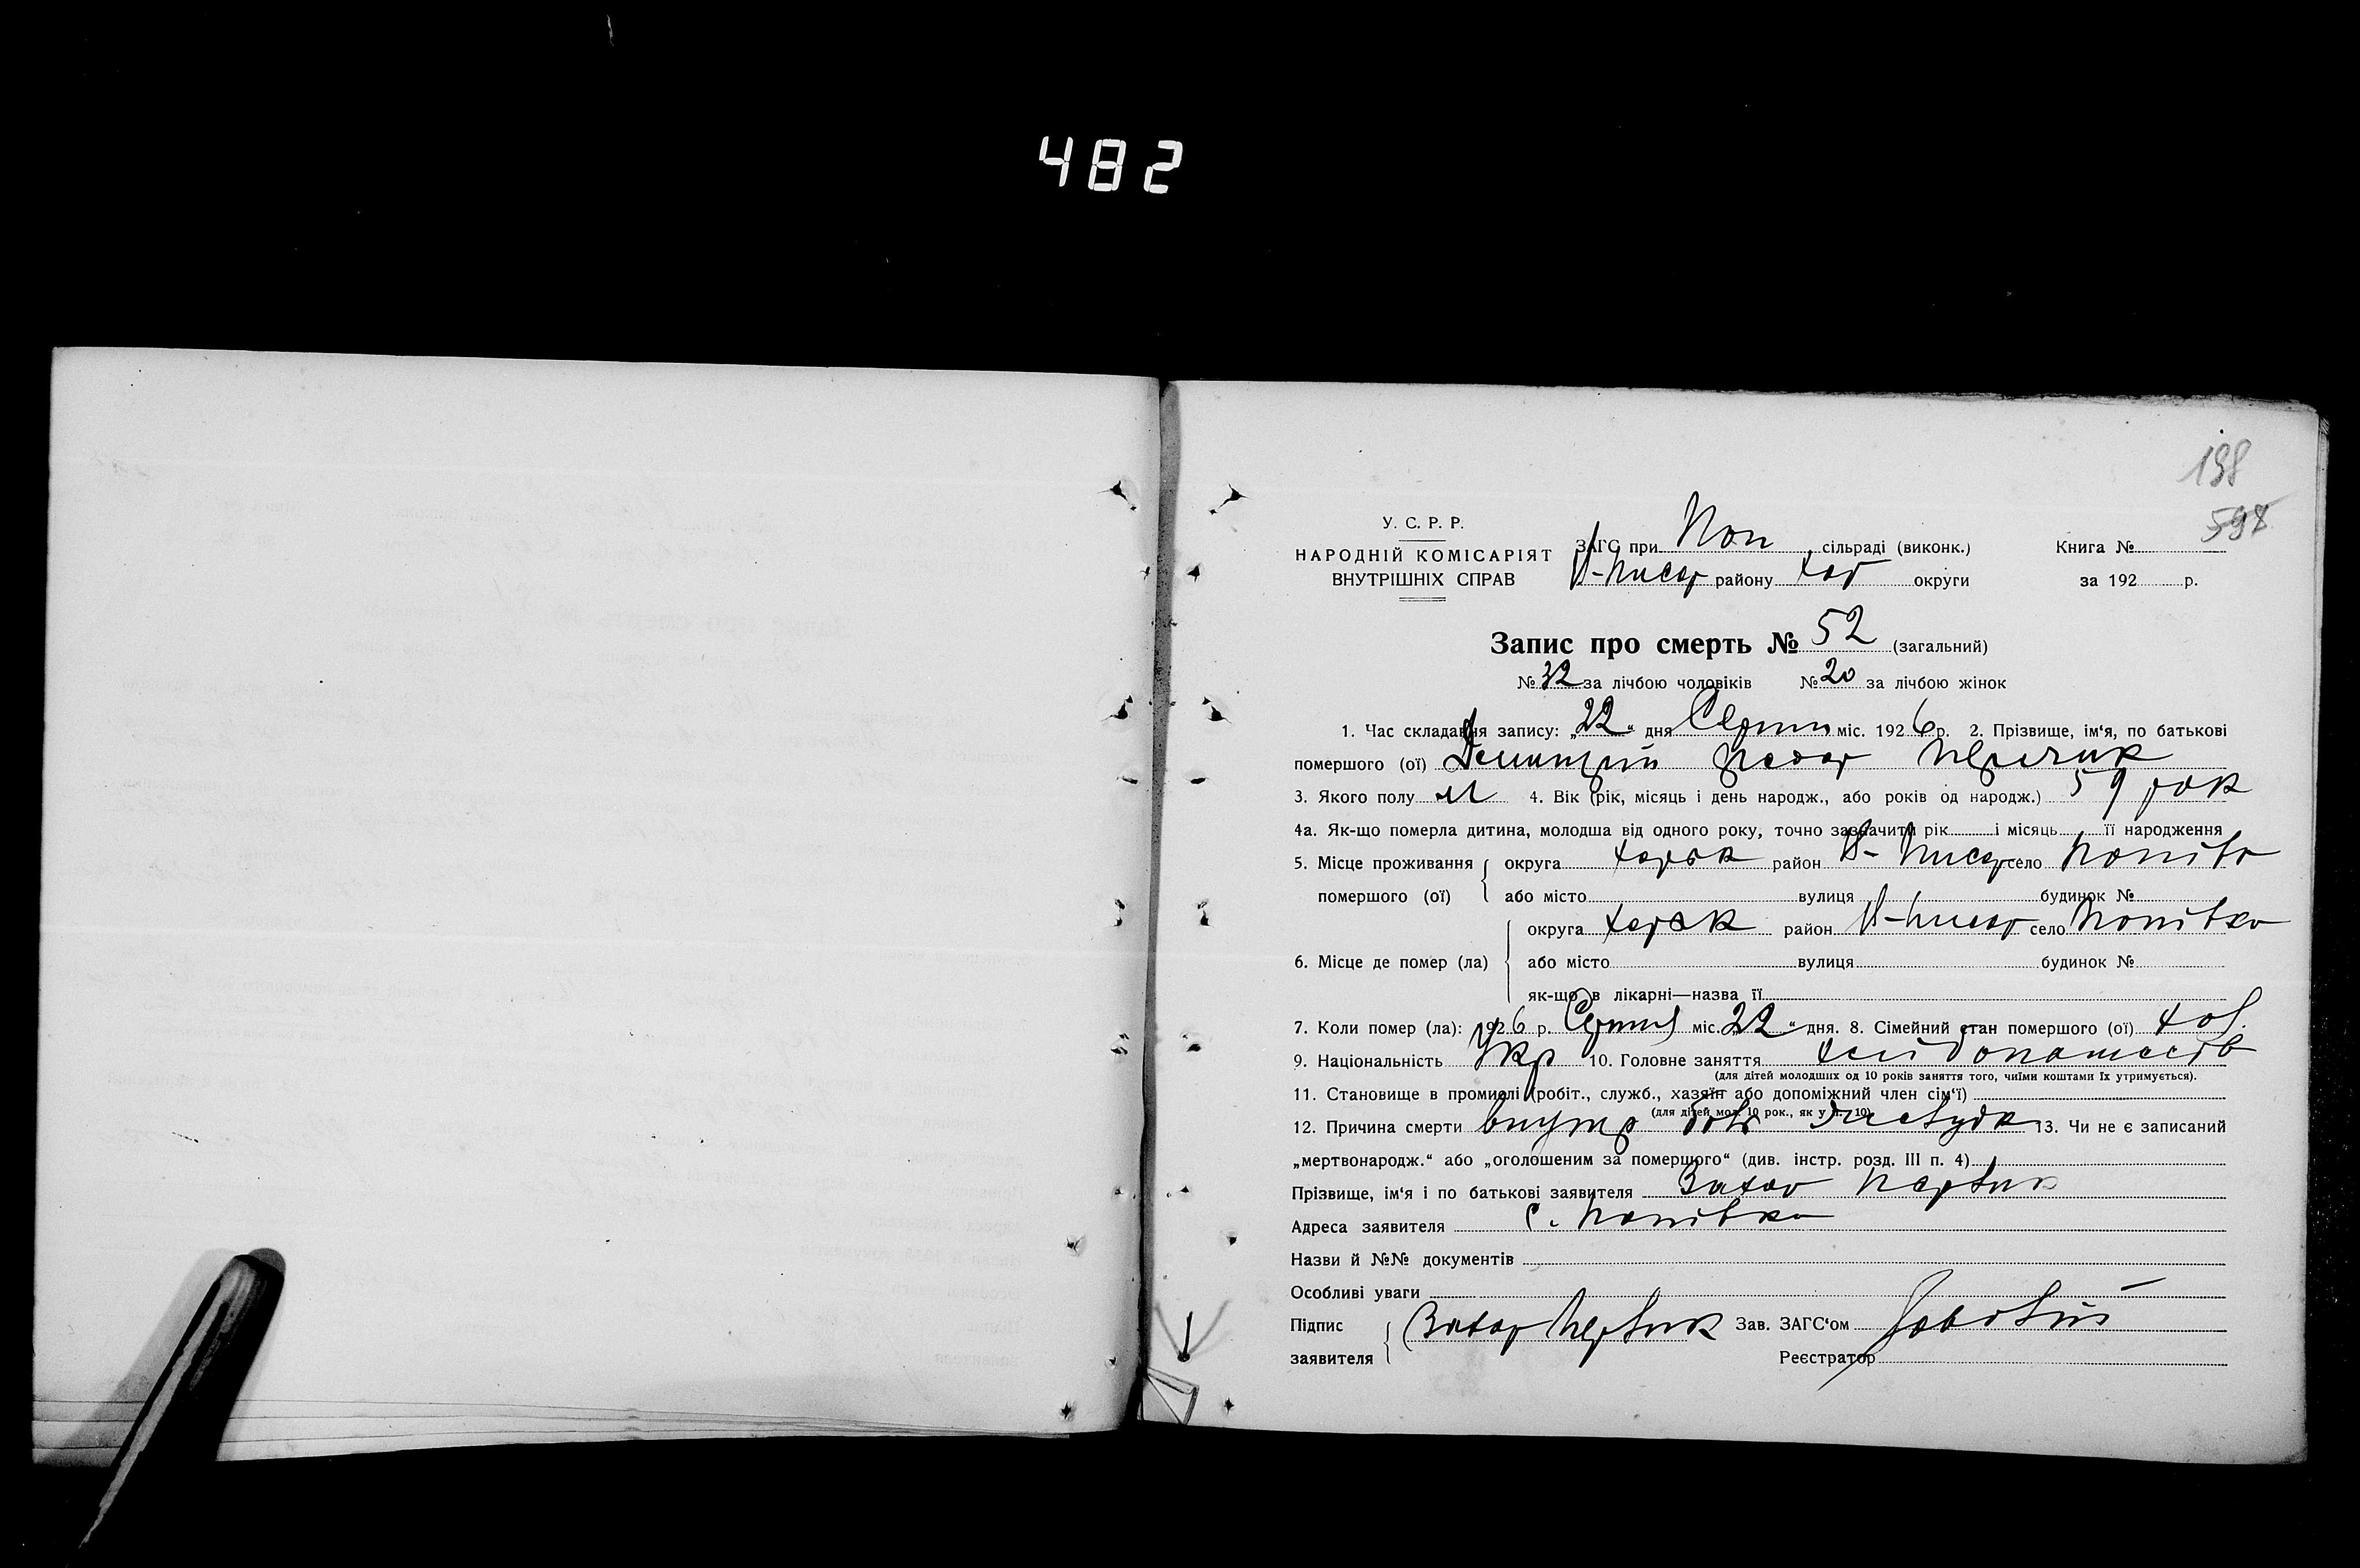 482
198
598
У. С. Р. Р.
НАРОДНІЙ КОМІСАРІЯТ
ВНУТРІШНІХ СПРАВ
ЗАГС при Поп сільраді (виконк.)
В-Писар району Хар округи
Книга №
за 192 р.
Запис про смерть № 52 (загальний)
№ 32 за лічбою чоловіків № 20 за лічбою жінок
1. Час складання запису: „22“ дня Серпня міс. 1926 р. 2. Прізвище, ім‘я, по батькові
помершого (ої) Дмитрій Федор
3. Якого полу М 4. Вік (рік, місяць і день народж., або років од народж.) 59 рок
4а. Як-що померла дитина, молодша від одного року, точно зазначити рік і місяць її народження
5. Місце проживання помершого (ої) округа Харьк район В-Писар село Попівк
або місто вулиця будинок №
6. Місце де помер (ла) округа Харьк район В-Писар село Попівка
або місто вулиця будинок №
як-що в лікарні—назва її
7. Коли помер (ла): 1926 р. Серпня міс. „22“ дня. 8. Сімейний стан помершого (ої)
9. Національність Укр 10. Головне заняття
(для дітей молодших од 10 років заняття того, чиїми коштами їх утримується).
11. Становище в промислі (робіт., служб., хазяїн або допоміжний член сім‘ї)
(для дітей мол. 10 рок., як у п. 10)
12. Причина смерти внутр 13. Чи не є записаний
„мертвонародж.“ або „оголошеним за помершого“ (див. інстр. розд. III п. 4)
Прізвище, ім‘я і по батькові заявителя Захар
Адреса заявителя с. Попівка
Назви й №№ документів
Особливі уваги
Підпис заявителя Захар Зав. ЗАГС‘ом
Реєстратор